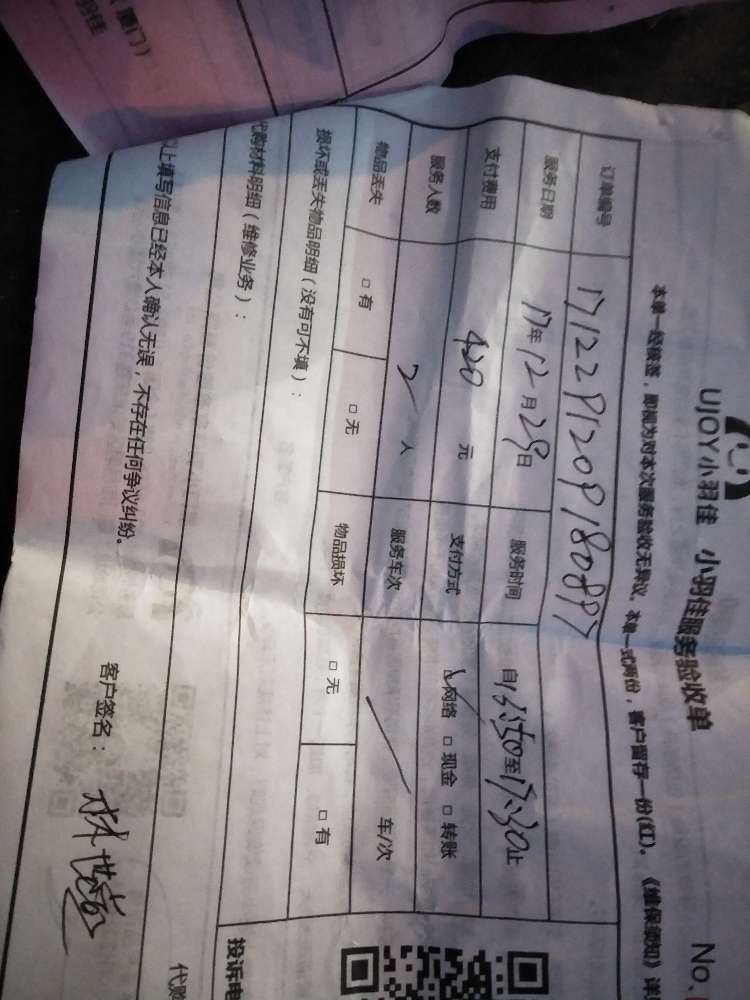 UJOY小羽佳 小羽佳服务验收单
No.
本单一经接签，即视为对本次服务验收无异议，本单一式两份，客户留存一份(红)。《维保须知》详
订单编号 171229120918088
服务日期 17年12月29日 服务时间 自16:50至17:30止
支付费用 420元 支付方式 ☑网络 □现金 □转账
服务人数 2人 服务车次 / 车/次
物品丢失 □有 □无 物品损坏 □无 □有
损坏或丢失物品明细（没有可不填）：
代购材料明细（维修业务）：
投诉电
以上填写信息已经本人确认无误，不存在任何争议纠纷。
代购
客户签名：
厦门）
羽佳